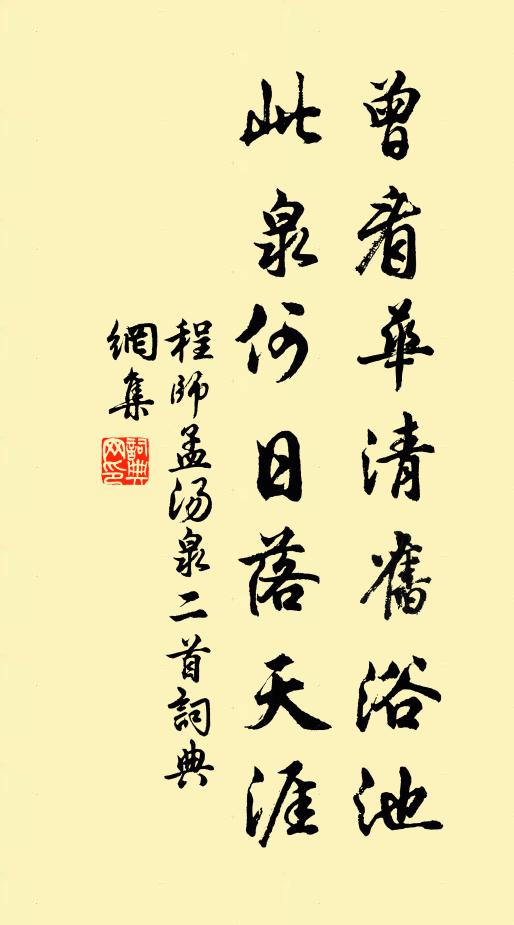 曾看華清舊浴池
此泉何日落天涯
程師孟湯泉二首詞典
網集
詞典
网印